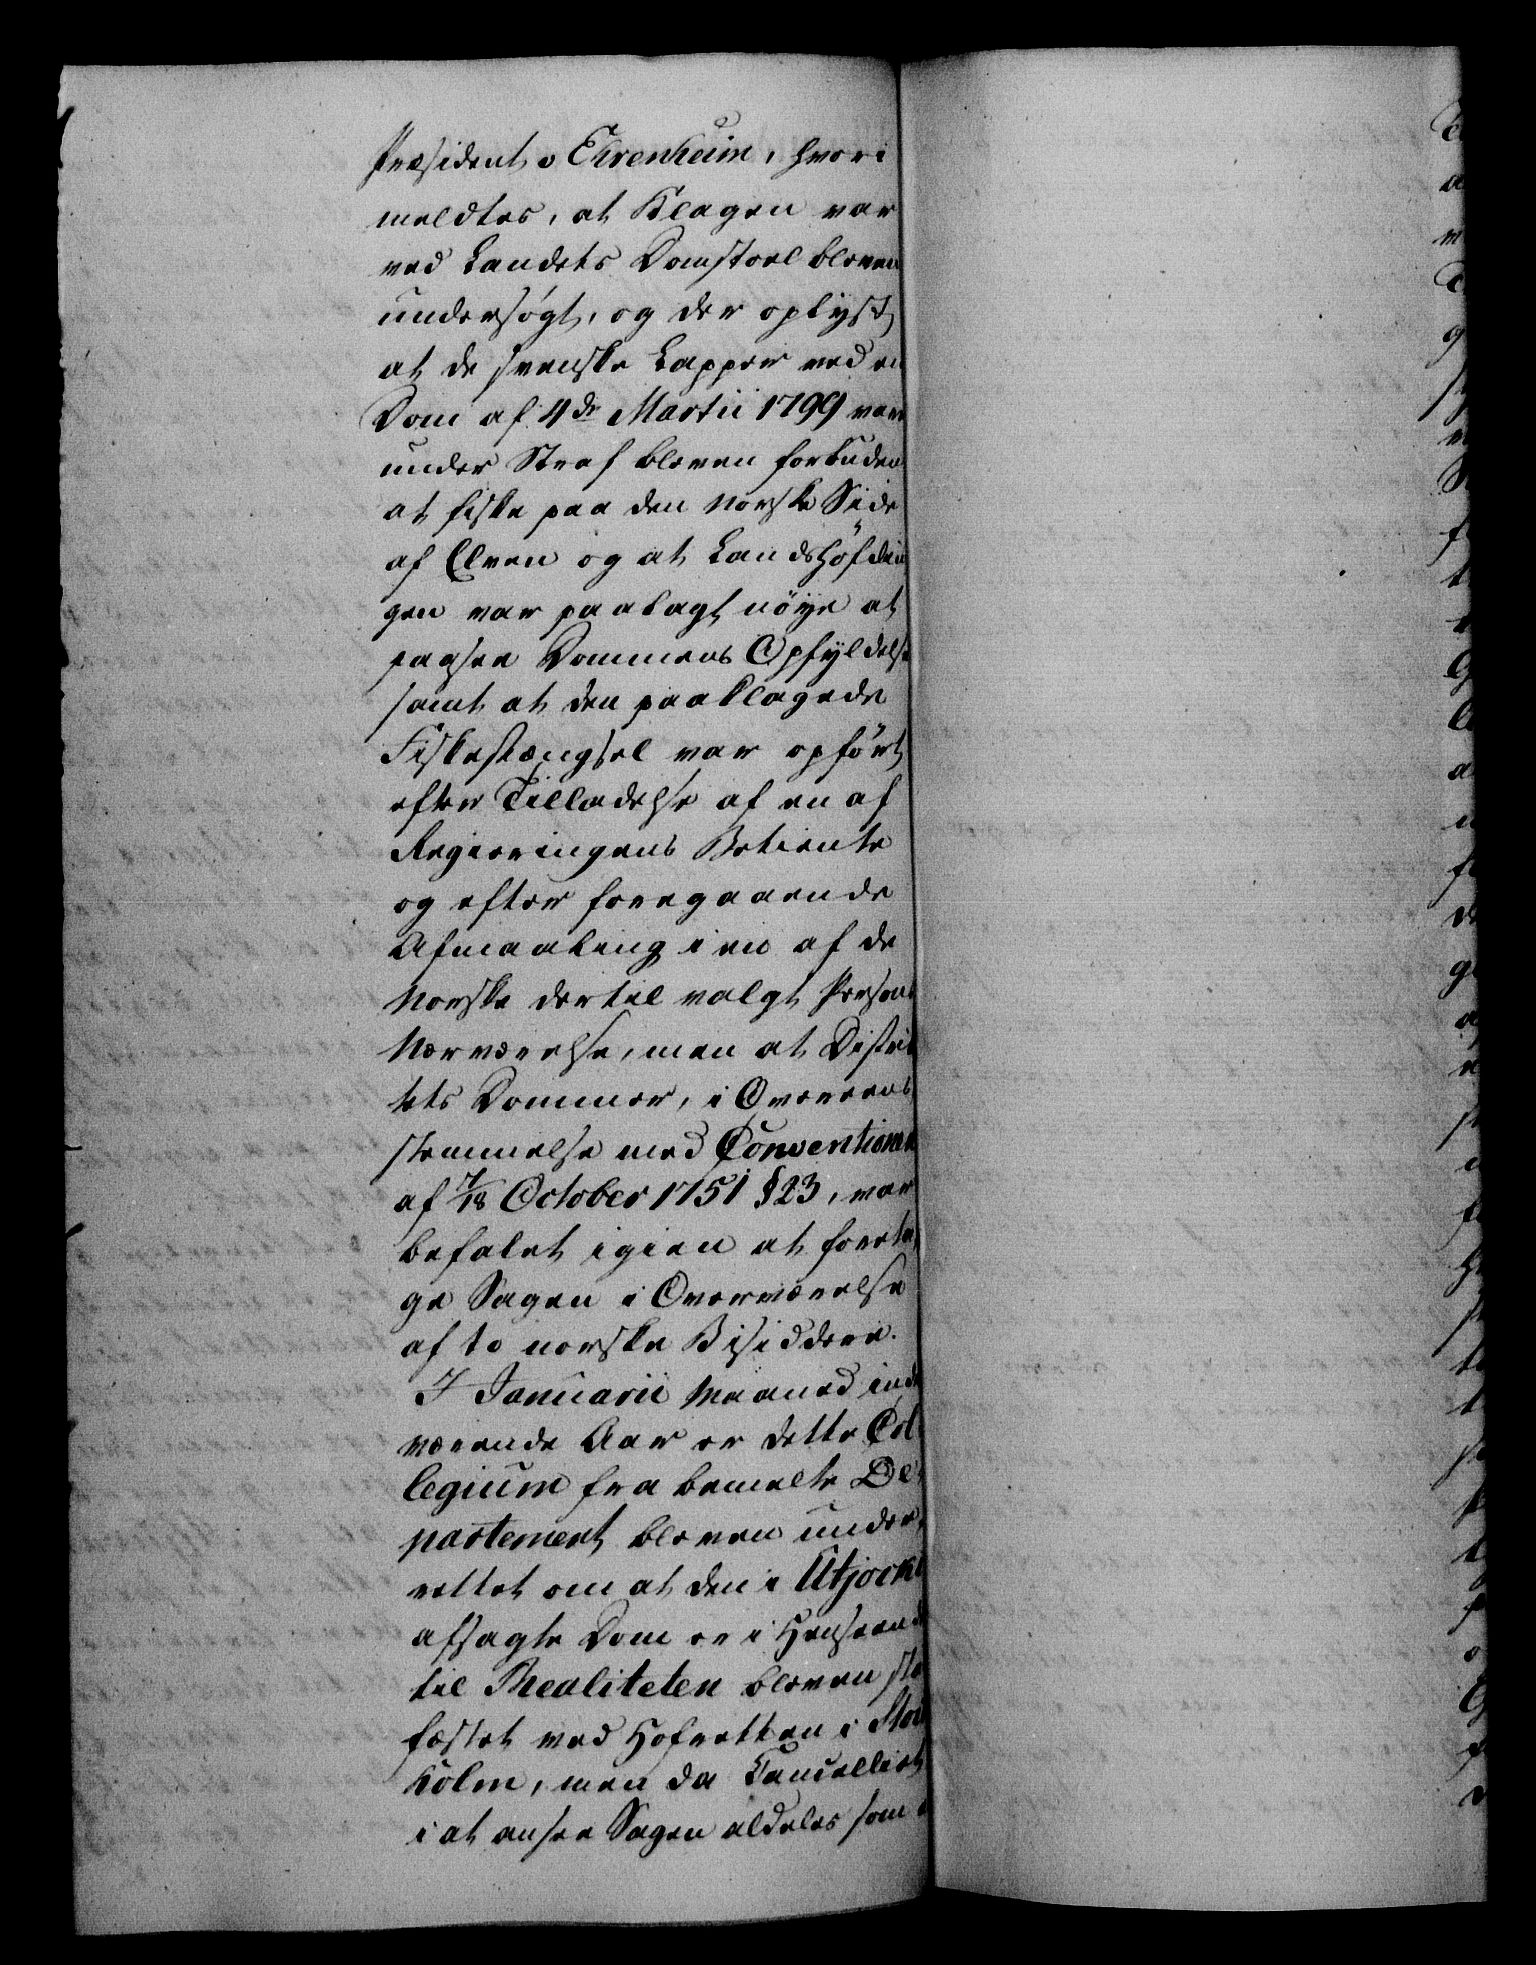 Præsident v Ehrenheim, hvori
meldtes, at Klagen var
ved Landets Domstoel bleven
undersøgt, og der oplyst
at de svenske Lapper ved en
Dom af 4de Martii 1799 vare
under Straf bleven forbuden
at fiske paa den norske Side
af Elven og at Landshöfdin
gen var paalagt nöye at
paasee Dommens Opfyldelse
samt at den paaklagede
Fiskestængsel var opført
efter Tilladelse af en af
Regieringens Betiente
og efter foregaaende
Afmaaling i en af de
Norske dertil valgt Persons
Nærværelse, men at Distri
tets Dommer, i Overeens
stemmelse med Conventionen
af 7/18 October 1751 § 23, var
befalet igien at foreta
ge Sagen i Overværelse
af to norske Bisiddere.
I Januarii Maaned inde
værende Aar er dette Col
legium fra bemelte De
partement bleven under
rettet om at den i Utjocki
afsagte Dom er i Henseende
til Realiteten bleven sta
fæstet ved Hofretten i Stock
holm, men da Cancelliet
i at ansee Sagen aldeles som